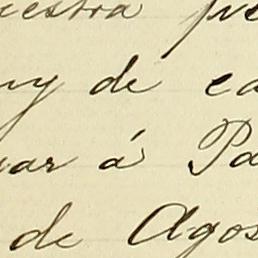 uestra pre
uy de ca
uar á Pa
de Agos